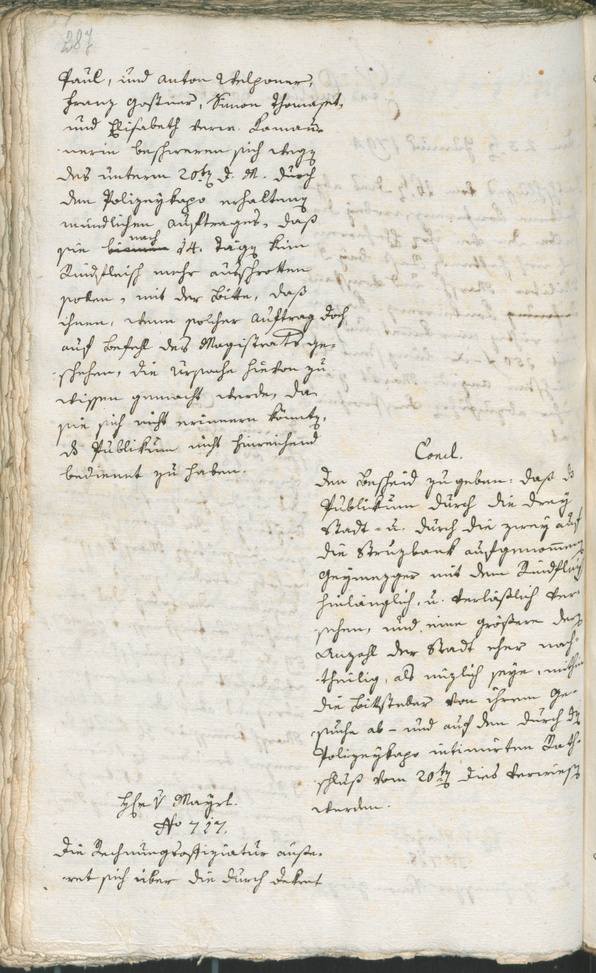 287
Paul, und Anton Welponer
Franz Gostner, Simon Thomaset,
und Elisabeth
nerin beschweren sich wegen
des unterm 20ten d. M. durch
den Polizeykapo erhaltenen
mündlichen Auftrages, daß
sie binnen nach 14. Tägen kein
Rindfleisch mehr ausschrotten
sollen, mit der Bitte, daß
ihnen, wenn solcher Auftrag doch
auf Befehl des Magistrats ge-
schehen, die Ursache hievon zu
wissen gemacht werde, da
sie sich nicht erinnern könnten,
ds Publikum nicht hinreichend
bedienet zu haben.
Concl.
den Bescheid zu geben: daß ds
Publikum durch die drey
Stadt- u. durch die zwey auf
die aufgenommenen
Geymezger mit dem Rindfleisch
hinlänglich, u. verläßlich ver-
sehen, und eine größere der
Anzahl der Stadt eher nach-
theilig, als nüzlich seye, mithin
die Bittsteller von ihrem Ge-
suche ab- und auf den durch den
Polizeykapo intimirten Rath-
schluß vom 20ten dies verwiesen
werden.
Hr. v Mayrl.
No 717.
Die Rechnungsoffiziatur äuße-
ret sich über die durch Dekret